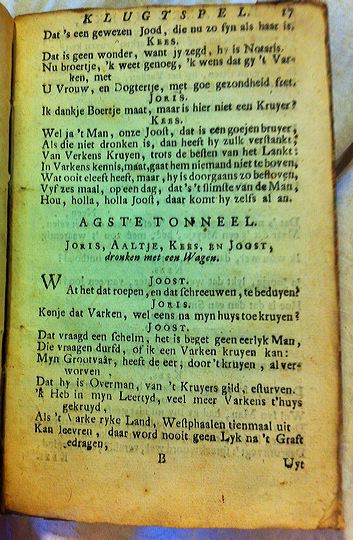 KLUGTSPEL. 17
Dat 's een gewezen Jood, die nu zo fyn als haar is.
KEES.
Dat is geen wonder, want jy zegd, hy is Notaris.
Nu broertje, 'k weet genoeg, 'k wens dat gy 't Var-
ken, met
U Vrouw, en Dogtertje, met goe gezondheid freet.
JORIS.
Ik dankje Boertje maat, maar is hier niet een Kruyer?
KEES.
Wel ja 't Man, onze Joost, dat is een goejen bruyer,
Als die niet dronken is, dan heeft hy zulk verstant;
Van Verkens Kruyen, trots de besten van het Lankt:
In Varkens kennis, maat, gaat hem niemand niet te boven,
Wat ooit eleeft heeft, maar, hy is doorgaans zo bestoven,
Vyf zes maal, op een dag, dat 's 't slimste van de Man,
Hou, holla, holla Joost, daar komt hy zelfs al an.
AGSTE TONNEEL.
JORIS, AALTJE, KEES, EN JOOST,
dronken met een Wagen.
JOOST.
WAt het dat roepen, en dat schreeuwen, te beduyen?
JORIS.
Kenje dat Varken, wel eens na myn huys toe kruyen?
JOOST.
Dat vraagd een schelm, het is beget geen eerlyk Man,
Die vragen durfd, of ik een Varken kruyen kan:
Myn Grootvaâr, heeft de eer, door 't kruijen, al ver-
worven,
Dat hy is Overman, van 't Kruyers gild, esturven.
'k Heb in myn Leertyd, veel meer Varkens t'huys
gekruyd,
Als 't Varke ryke Land, Westphaalen tienmaal uit
Kan leevren, daar word nooit geen Lyk na 't Graft
edragen,
B
Uyt